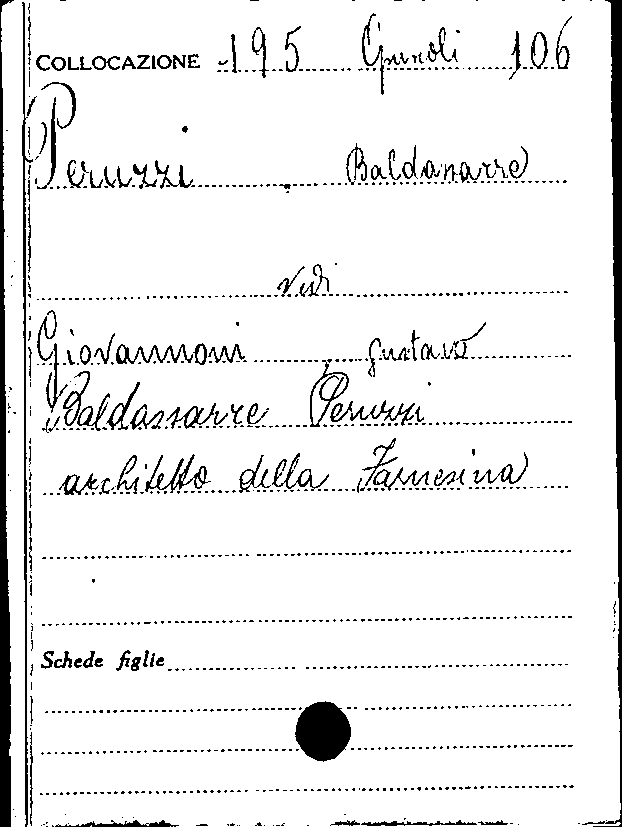 COLLOCAZIONE 195 106
Peruzzi . Baldassarre
vedi
Giovannoni, Gustavo
Baldassarre Peruzzi
architetto della Farnesina
Schede figlie